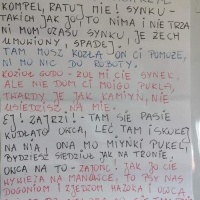 KOMPEL, RATUJ MIE! SYNKU -
TAKICH JAK JO TU NIMA I NIE TRZA
NI MOM CZASU SYNKU, JE ZECH
UMÓWIONY, SPADEJ.
TAM MOSZ KOZŁA ON CI POMOŻE,
NI MO NIC DO ROBOTY.
KOZIOŁ GODO - ŻOL MI CIE SYNEK,
ALE NIE DOM CI MOIGU PUKLA,
TWARDY JE JAK KAMIYŃ, NIE
USIEDZISZ NA MIE.
EJ! ZATRZI! - TAM SIE PASIE
KUDŁATO OWCA, LEĆ TAM I SKUKEJ
NA NIA, ONA MO MIYNKI PUKEL,
BYDZIESZ SIEDZIOŁ JAK NA TRONIE.
OWCA NA TO - ZATONC! JAK JO CIE
WYNIEZA NA MANOWCE, TO PSY NAS
DOGONIOM I ZJEDZOM HAZOKA I OWCA.